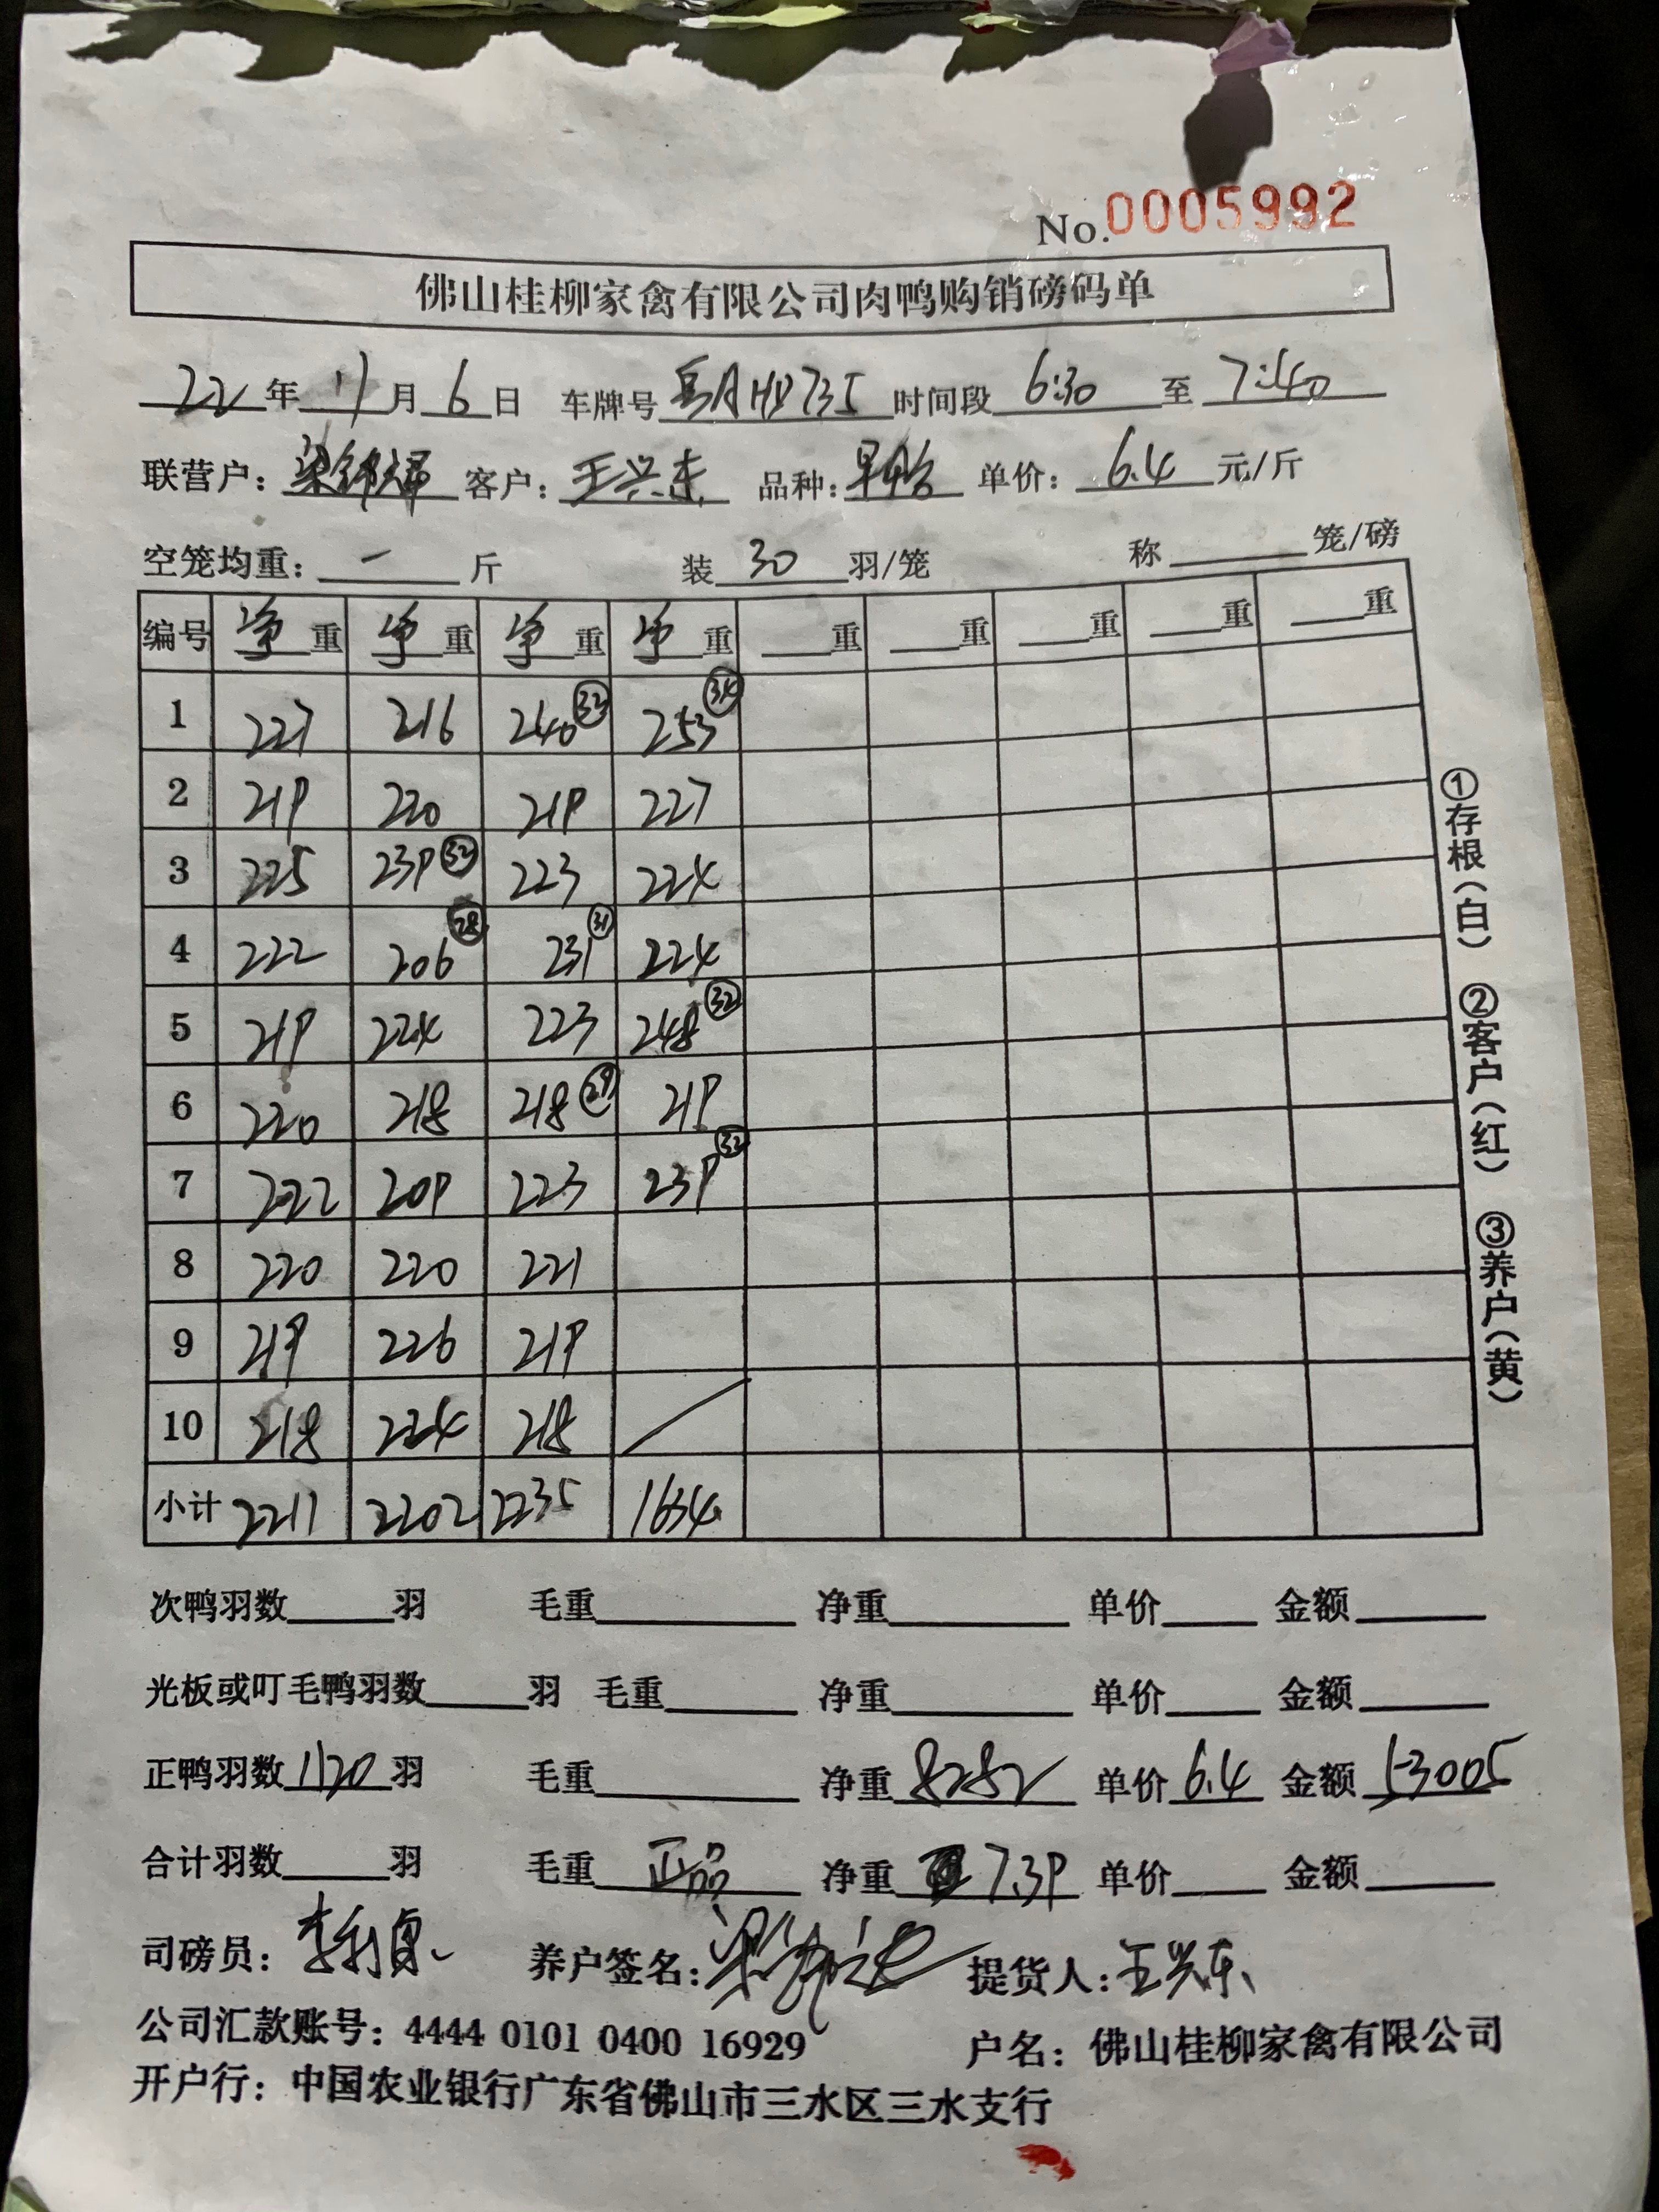 No.0005992
佛山桂柳家禽有限公司肉鸭购销磅码单
22年11月6日 车牌号 时间段 6:30 至 7:40
联营户: 梁锦 客户: 王兴东 品种: 单价: 6.4 元/斤
空笼均重: 一 斤 装 30 羽/笼 称 笼/磅
编号 净重 净重 净重 净重 重 重 重 重 重
1 227 216 240 ㉝ 253 ㉞
2 219 220 219 227
3 225 239 ㉜ 223 224
4 222 206 ㉘ 231 ㉛ 224
5 219 224 223 248 ㉜
6 220 218 218 ㉙ 219
7 222 209 223 239 ㉜
8 220 220 221
9 219 226 219
10 218 224 218 /
小计 2211 2202 2235 1634
次鸭羽数 羽 毛重 净重 单价 金额
光板或叮毛鸭羽数 羽 毛重 净重 单价 金额
正鸭羽数 1120 羽 毛重 净重 8282 单价 6.4 金额 53005
合计羽数 羽 毛重 正品 净重 7.39 单价 金额
司磅员: 养户签名: 提货人: 王兴东
公司汇款账号: 4444 0101 0400 16929 户名: 佛山桂柳家禽有限公司
开户行: 中国农业银行广东省佛山市三水区三水支行
①存根(白) ②客户(红) ③养户(黄)